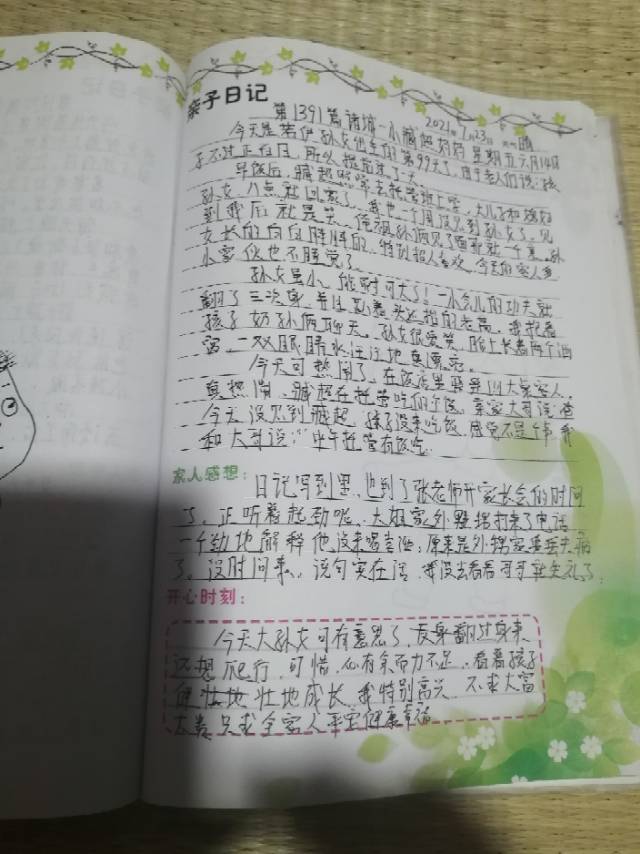 亲子日记
第1391篇 诸城一小臧 2021年7月23日 晴
星期五 六月14日
今天是若伊孙女出生的第99天了,由于老人们说孩
子不过正百日,所以提前过了一天
早饭后,臧超照常去托管班上学,大儿子和媳妇
孙女八点就回家了,我也一个周没见到孙女了,见
到我后就是笑,
女长的白白胖胖的,特别招人喜欢,今天的客人多
小家伙也不睡觉了。
孙女虽小,能耐可大了!一小会儿的功夫就
翻了三次身,并且
孩子奶孙俩聊天,孙女很爱笑,脸上长着两个酒
窝,一双眼睛水汪汪地真漂亮。
今天可热闹了,在饭店里
真热闹,臧超在托管吃的午饭,亲家大哥说:
今天没见到臧超,孩子没来吃饭,感觉不是个事,我
和大哥说:"中午托管有饭吃
家人感想:
日记写到里,也到了张老师开家长会的时间
了,正听着起劲呢,大姐家外甥打来了电话
一个劲地解释他没来喝喜酒,原来是外甥家
了,没时间来,说句实在话,我没去看看可真失礼了,
开心时刻:
今天大孙女可有意思了,反身翻过身来
还想爬行,可惜,心有余而力不足,看着孩子
健壮地壮地成长,我特别高兴,不求大富
大贵,只求全家人平安健康幸福